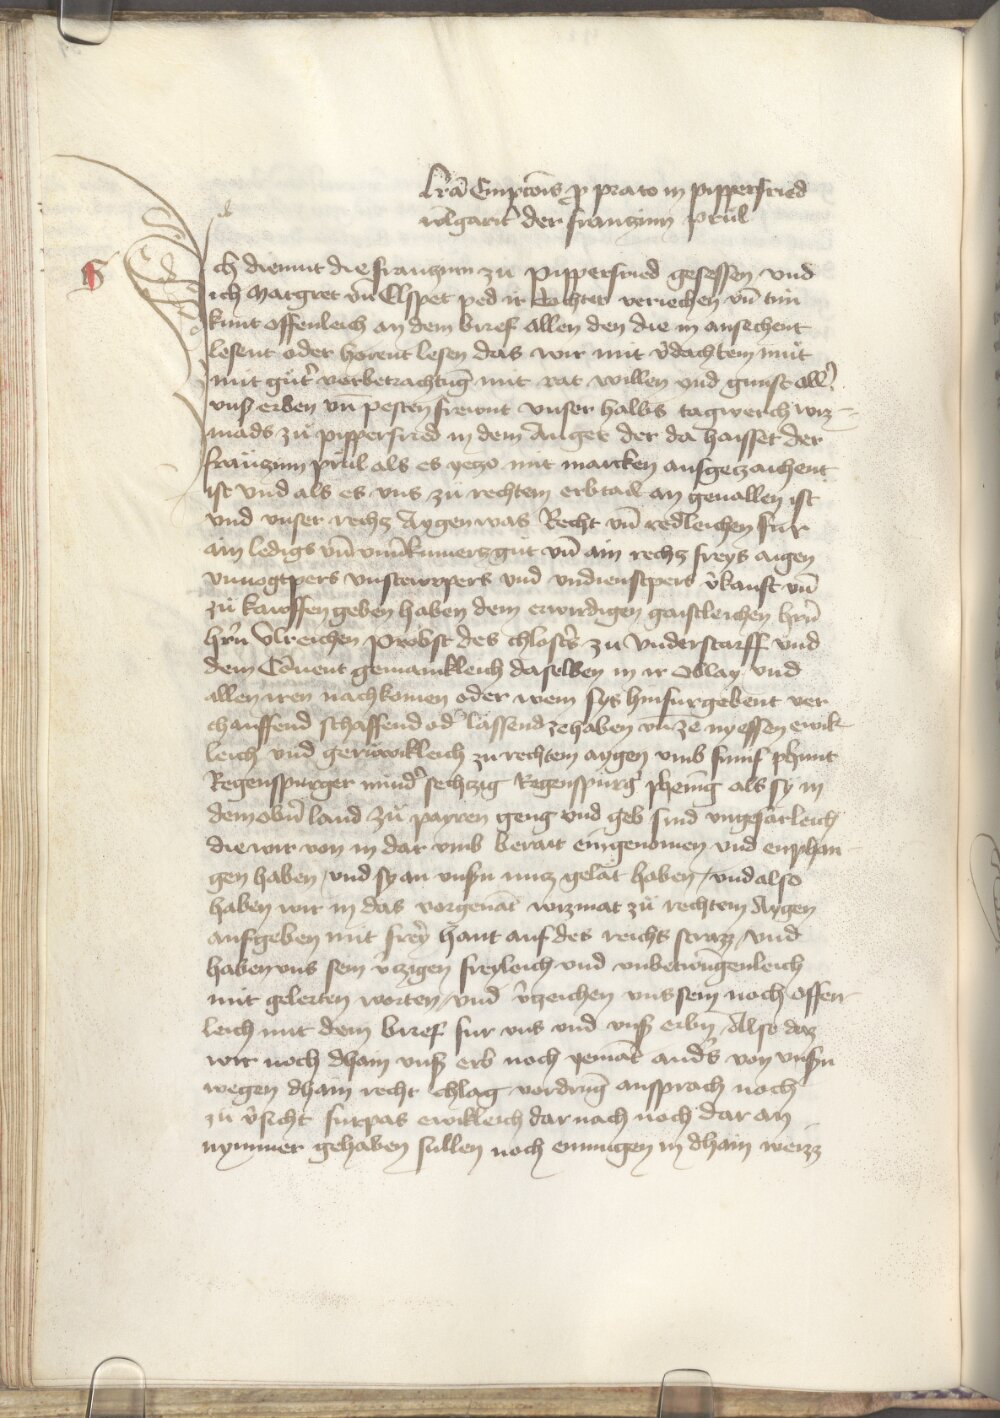 Lr̄a Empcōis ꝓ prato in pipperfried
vulgarit̾ der franczinn prül
Ich diemut die franczinn zu pipperfried gesessen vnd
ich Margret vn̄ Elspet ped ir Tochter veriechen vn̄ tün
kunt offenleich an dem brief allen den die in ansechent
lesent oder hörent lesen das wir mit v̾dachtem müt
mit güt̾ vorbetrachtūg mit rat willen vnd gunst all̾
vnß erben vn̄ pesten frewnt vnser halbs tagwerch wiz
mads zů pipperfried in dem Anger der da haisset der
franczinn prül als es yeczo mit marcken ausgeczaichent
ist vnd als es vns zu rechtem erbtail an geuallen ist
vnd vnser rechcz Aygen was Recht vn̄ redleichen für
ain ledigs vn̄ vnuͤkumercz gut vn̄ ain rechcz freys aigen
vnuogtpers vnstewrpers vnd vndienstpers v̾kauft vn̄
zů kawffen geben haben dem erwirdigen gaistleichen hr̄n
hr̄n Vlreichen Probst des chlost̾s zu Vnderstarff vnd
dem Cōuent gemainkleich daselben in ir Oblay vnd
allen iren nachkomen oder wem sys hinfürgebent ver
chauffend schaffend od̾ lassend ze haben vn̄ ze nyessen ewik
leich vnd gerüwikleich zu rechtem aygen vmb fünf phunt
Regenspurger mind̾ sechczig Regenspurg̾ phening als sy in
dem obn̄ land zů payren geng vnd geb sind vngefärleich
die wir von in dar vmb berait eingenomen vnd enphan
gen haben vnd sy an vnsn̄ nucz gelat haben vnd also
haben wir in das vorgenāt wizmat zů rechtem Aygen
aufgeben mit freÿ hant auf des reichs strazz vnd
haben vns sein v̾czigen freyleich vnd vnbetwūgenleich
mit gelerten worten vnd v̾czeichen vns sein noch offen
leich mit dem brief für vns vnd vnß erbn̄ Also daz
wir noch dhain vnß erb noch yemāt and̾s von vnsn̄
wegen dhain recht chlag vordrūg ansprach noch
zů v̾sicht fürpas ewikleich dar nach noch dar an
nymmer gehaben süllen noch enmügen in dhain weizz